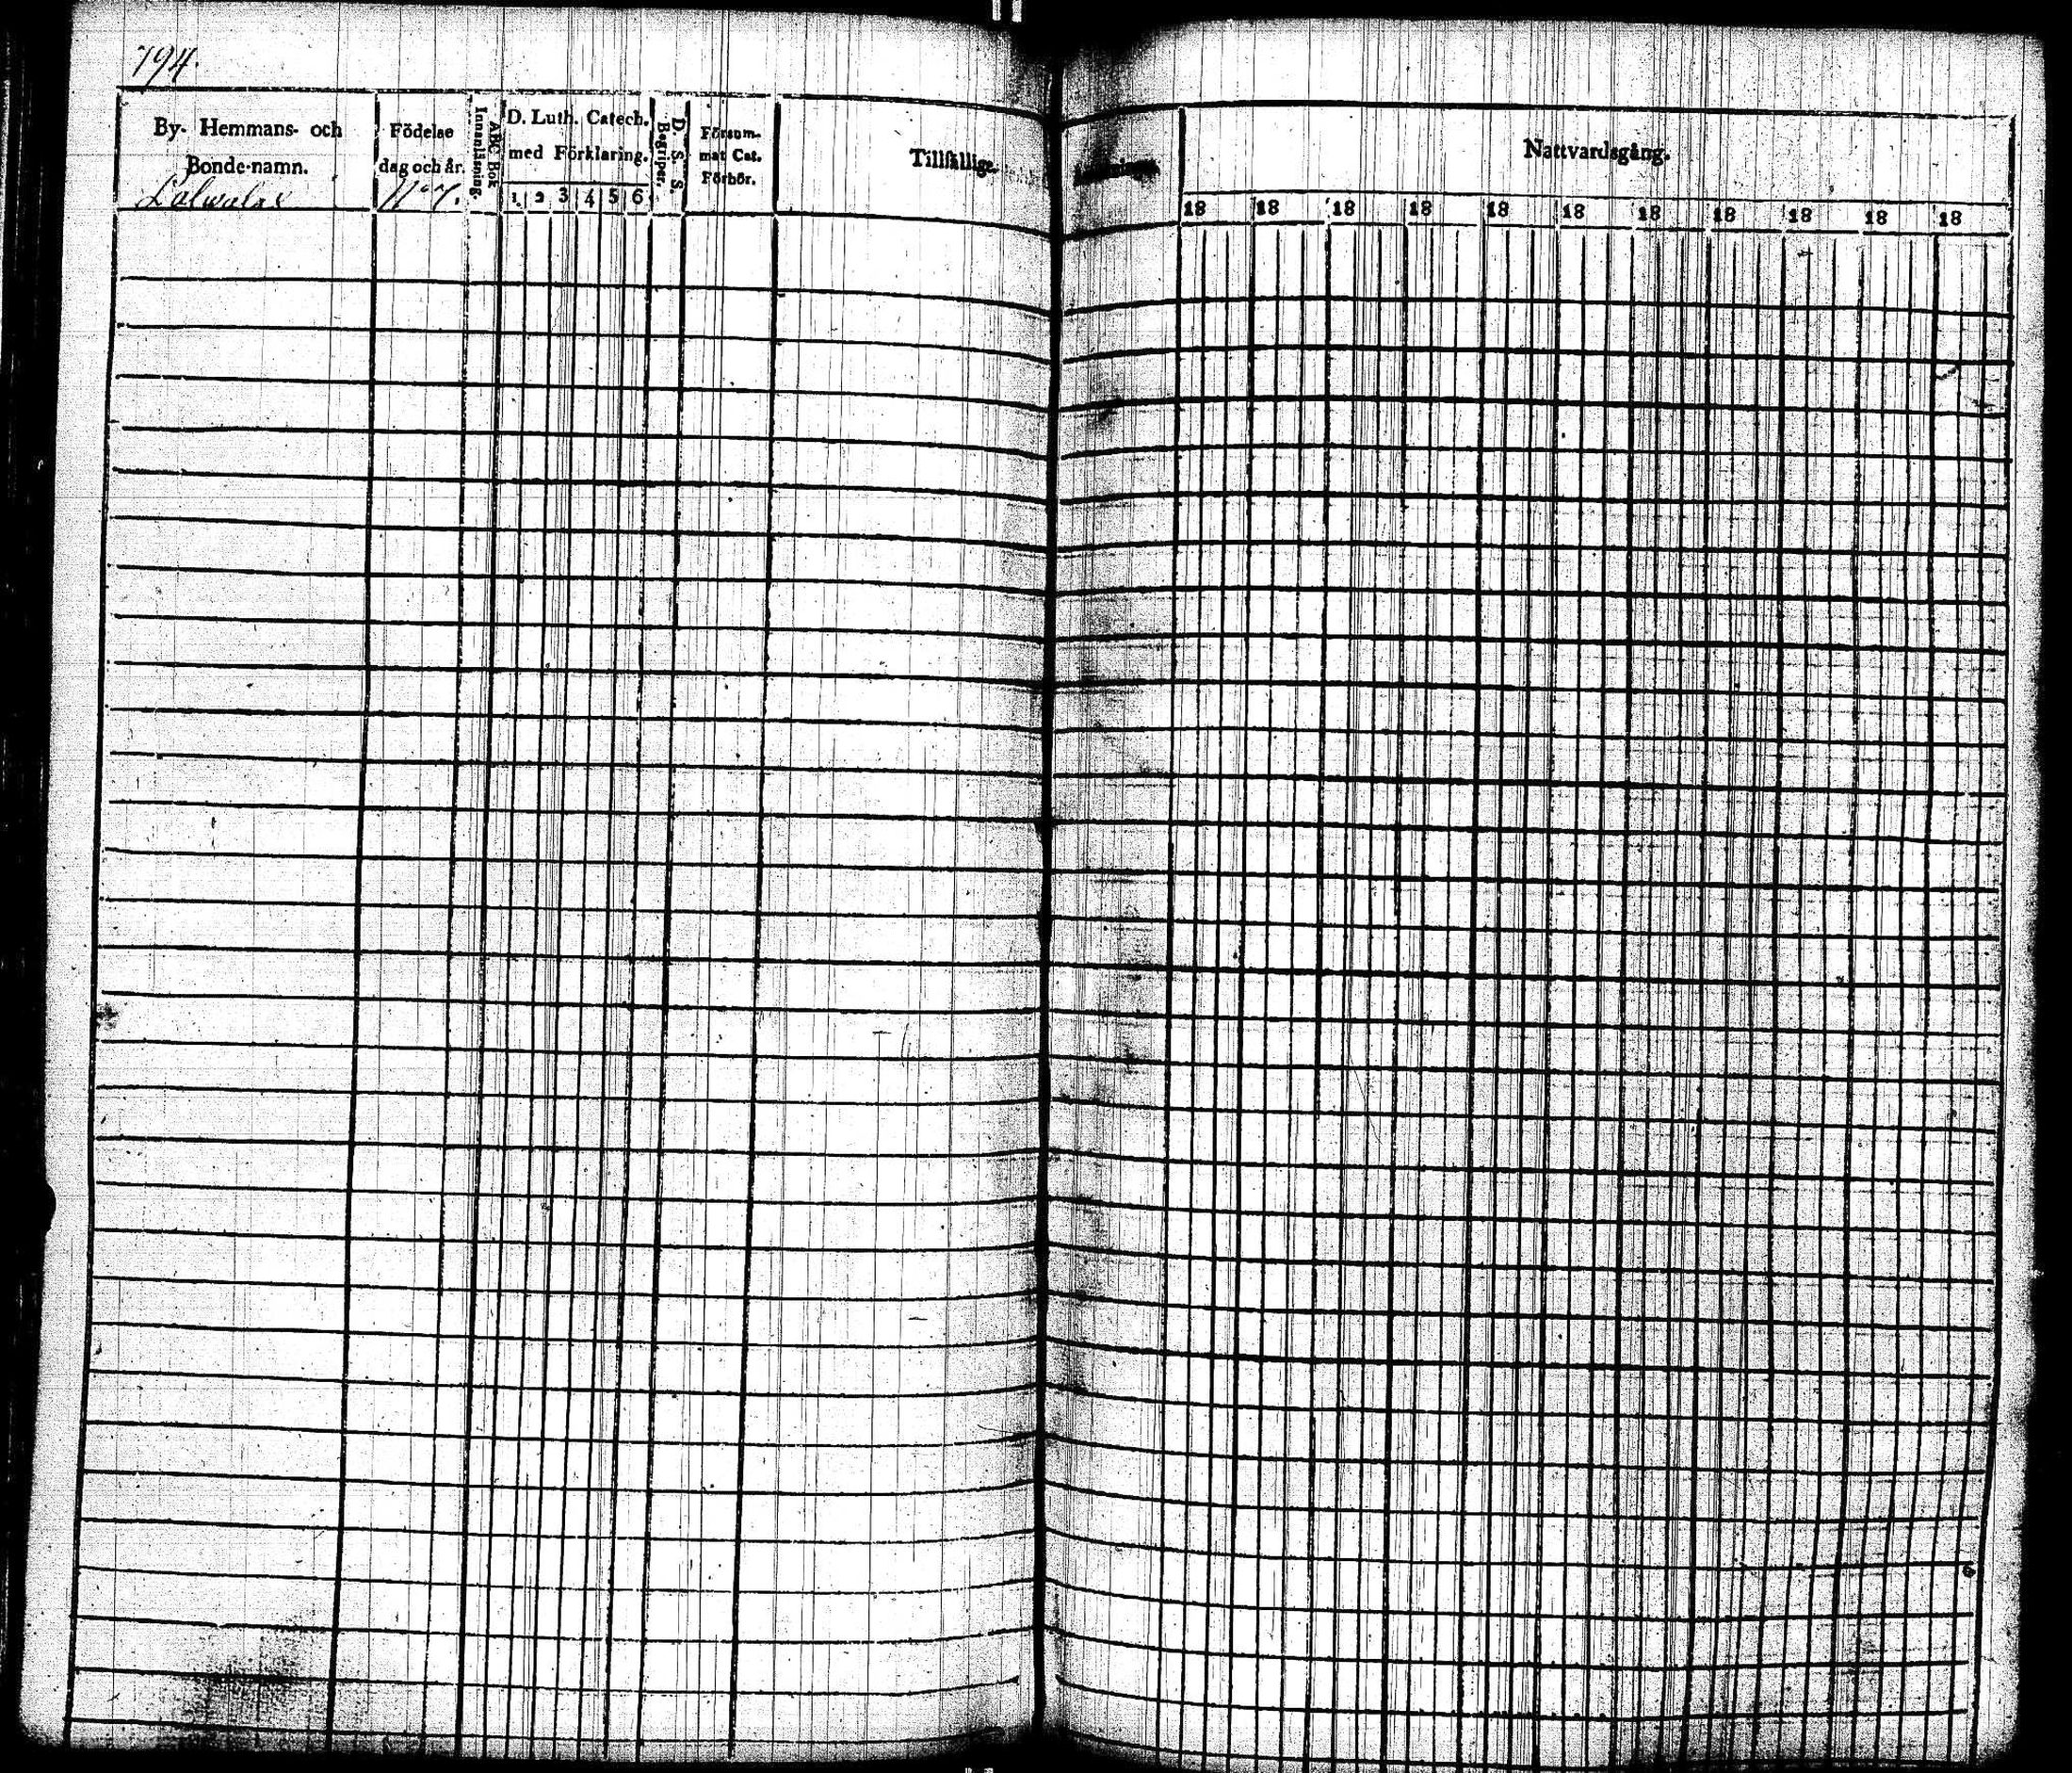 794.
By- Hemmans- och
Bonde-namn.
Födelse
dag och år.
ABC Bok
Innanläsning.
D. Luth. Catech.
med Förklaring.
1 2 3 4 5 6
D. S. S.
Begriper.
Försum-
mat Cat.
Förhör.
Tillfällige
Nattvardsgång.
N:o 7.
18 18 18 18 18 18 18 18 18 18 18